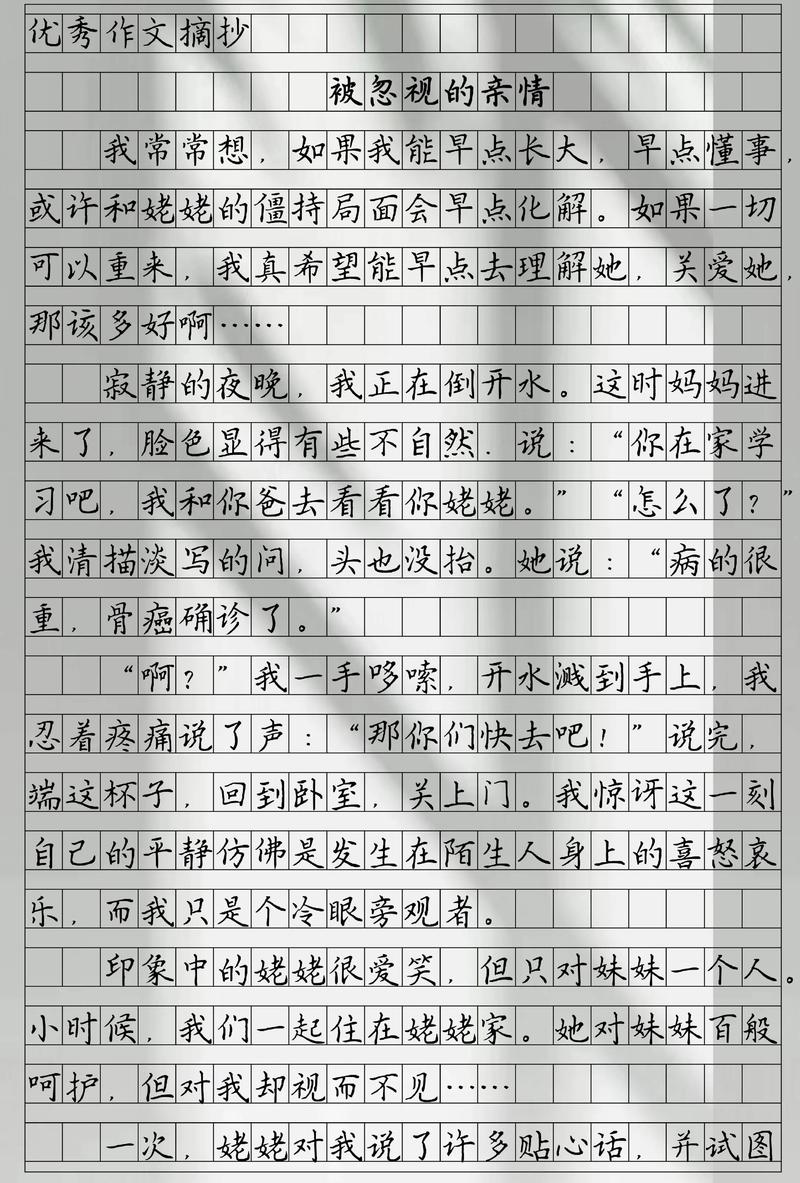 优秀作文摘抄
被忽视的亲情
我常常想，如果我能早点长大，早点懂事，
或许和姥姥的僵持局面会早点化解。如果一切
可以重来，我真希望能早点去理解她，关爱她，
那该多好啊……
寂静的夜晚，我正在倒开水。这时妈妈进
来了，脸色显得有些不自然．说：“你在家学
习吧，我和你爸去看看你姥姥。”“怎么了？”
我清描淡写的问，头也没抬。她说：“病的很
重，骨癌确诊了。”
“啊？”我一手哆嗦，开水溅到手上，我
忍着疼痛说了声：“那你们快去吧！”说完，
端这杯子，回到卧室，关上门。我惊讶这一刻
自己的平静仿佛是发生在陌生人身上的喜怒哀
乐，而我只是个冷眼旁观者。
印象中的姥姥很爱笑，但只对妹妹一个人。
小时候，我们一起住在姥姥家。她对妹妹百般
呵护，但对我却视而不见……
一次，姥姥对我说了许多贴心话，并试图